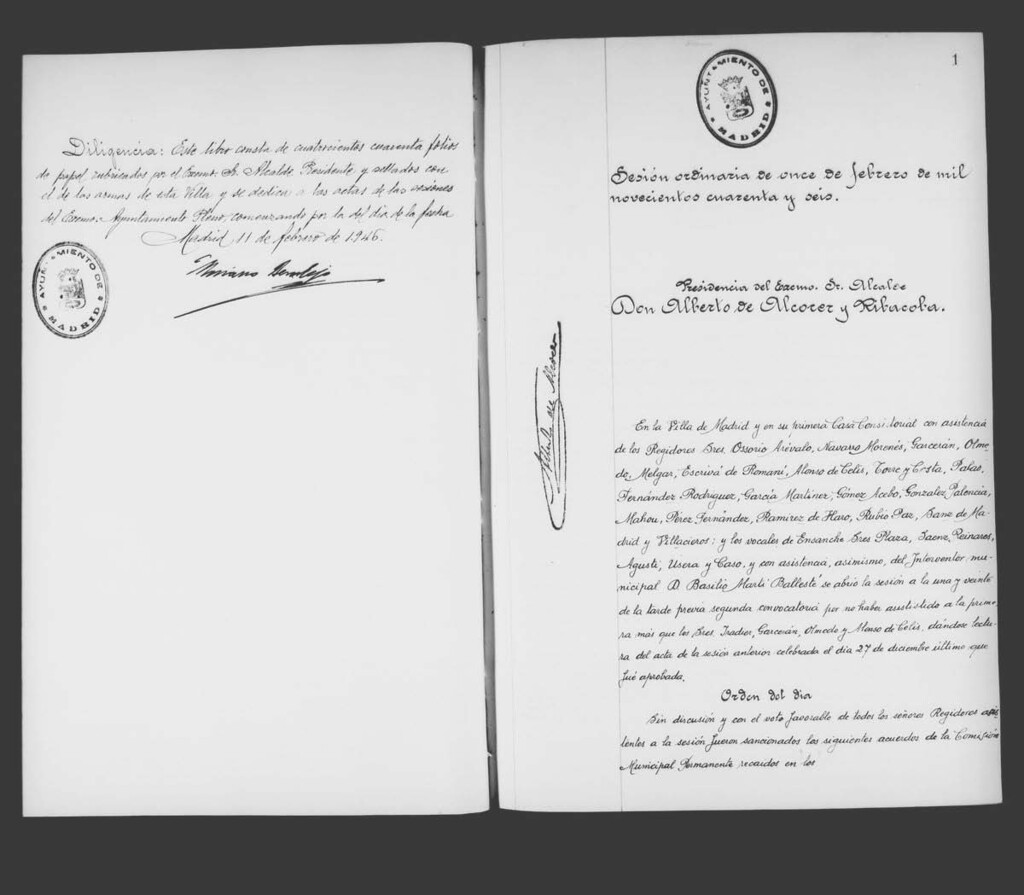 Diligencia: Este libro consta de cuatrocientos cuarenta folios
de papel rubricados por el Excmo. Sr. Alcalde Presidente y sellados con
el de las armas de esta Villa y se dedica a las actas de las sesiones
del Excmo. Ayuntamiento Pleno, comenzando por la del dia de la fecha
Madrid 11 de febrero de 1946.
Mariano
AYUNTAMIENTO DE
MADRID
1
AYUNTAMIENTO DE
MADRID
Sesión ordinaria de once de febrero de mil
novecientos cuarenta y seis.
Presidencia del Excmo. Sr. Alcalde
Don Alberto de Alcocer y Ribacoba.
Alberto de Alcocer
En la Villa de Madrid y en su primera Casa Consistorial con asistencia
de los Regidores Sres. Ossorio Arévalo, Navarro Morenés, Garcerán, Olme-
do, Melgar, Escrivá de Romaní, Alonso de Celis, Torre y Costa, Palao,
Fernández Rodriguez, García Martínez, Gómez Acebo, González Palencia,
Mahou, Pérez Fernández, Ramirez de Haro, Rubio Paz, Sanz de Ma-
drid y Villacieros; y los vocales de Ensanche Sres Plaza, Saenz, Reinares,
Agusti, Usera y Caso, y con asistencia, asimismo, del Interventor mu-
nicipal D. Basilio Martí Ballesté se abrió la sesión a la una y veinte
de la tarde previa segunda convocatoria por no haber asistido a la prime-
ra más que los Sres. Iradier, Garcerán, Olmedo y Alonso de Celis, dándose lectu-
ra del acta de la sesión anterior celebrada el día 27 de diciembre último que
fué aprobada.
Orden del dia
Sin discusión y con el voto favorable de todos los señores Regidores asis-
tentes a la sesión fueron sancionados los siguientes acuerdos de la Comisión
Municipal Permanente recaidos en los